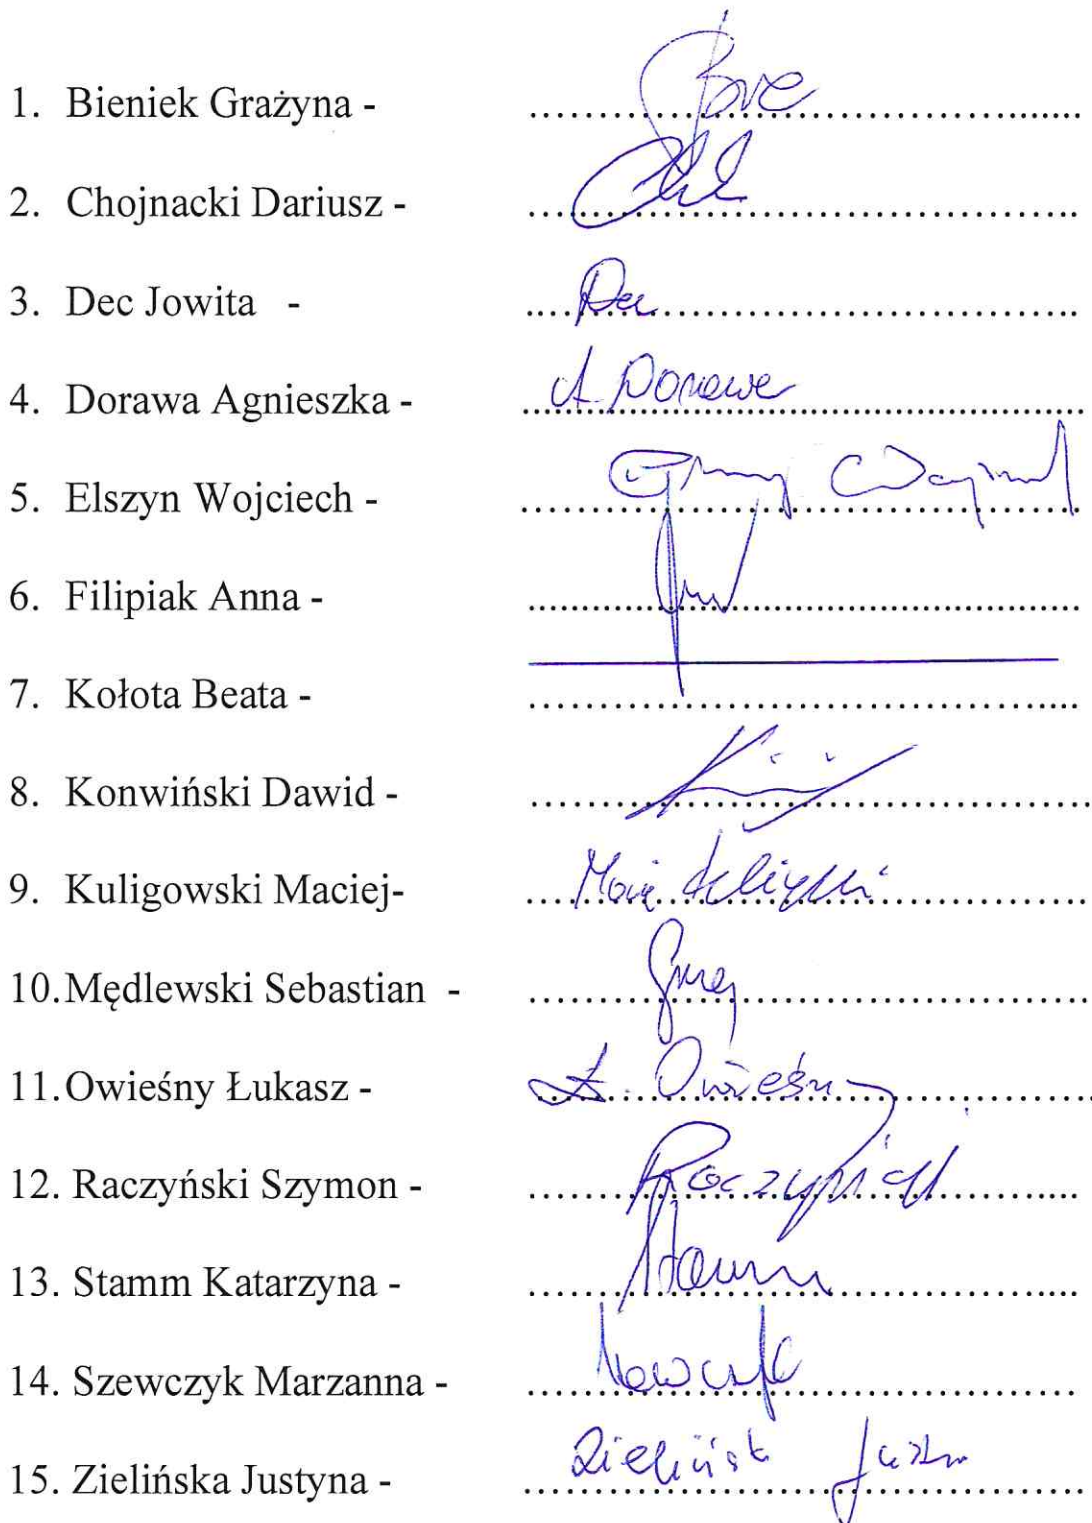 1. Bieniek Grażyna - ....................................
2. Chojnacki Dariusz - ....................................
3. Dec Jowita - .... Dec ....................................
4. Dorawa Agnieszka - A. Dorawa ....................................
5. Elszyn Wojciech - ....................................
6. Filipiak Anna - ....................................
7. Kołota Beata - ....................................
8. Konwiński Dawid - ....................................
9. Kuligowski Maciej- ....................................
10. Mędlewski Sebastian - ....................................
11. Owieśny Łukasz - Ł. Owieśny ....................................
12. Raczyński Szymon - Raczyński ....................................
13. Stamm Katarzyna - Stamm ....................................
14. Szewczyk Marzanna - ....................................
15. Zielińska Justyna - Zielińska ....................................